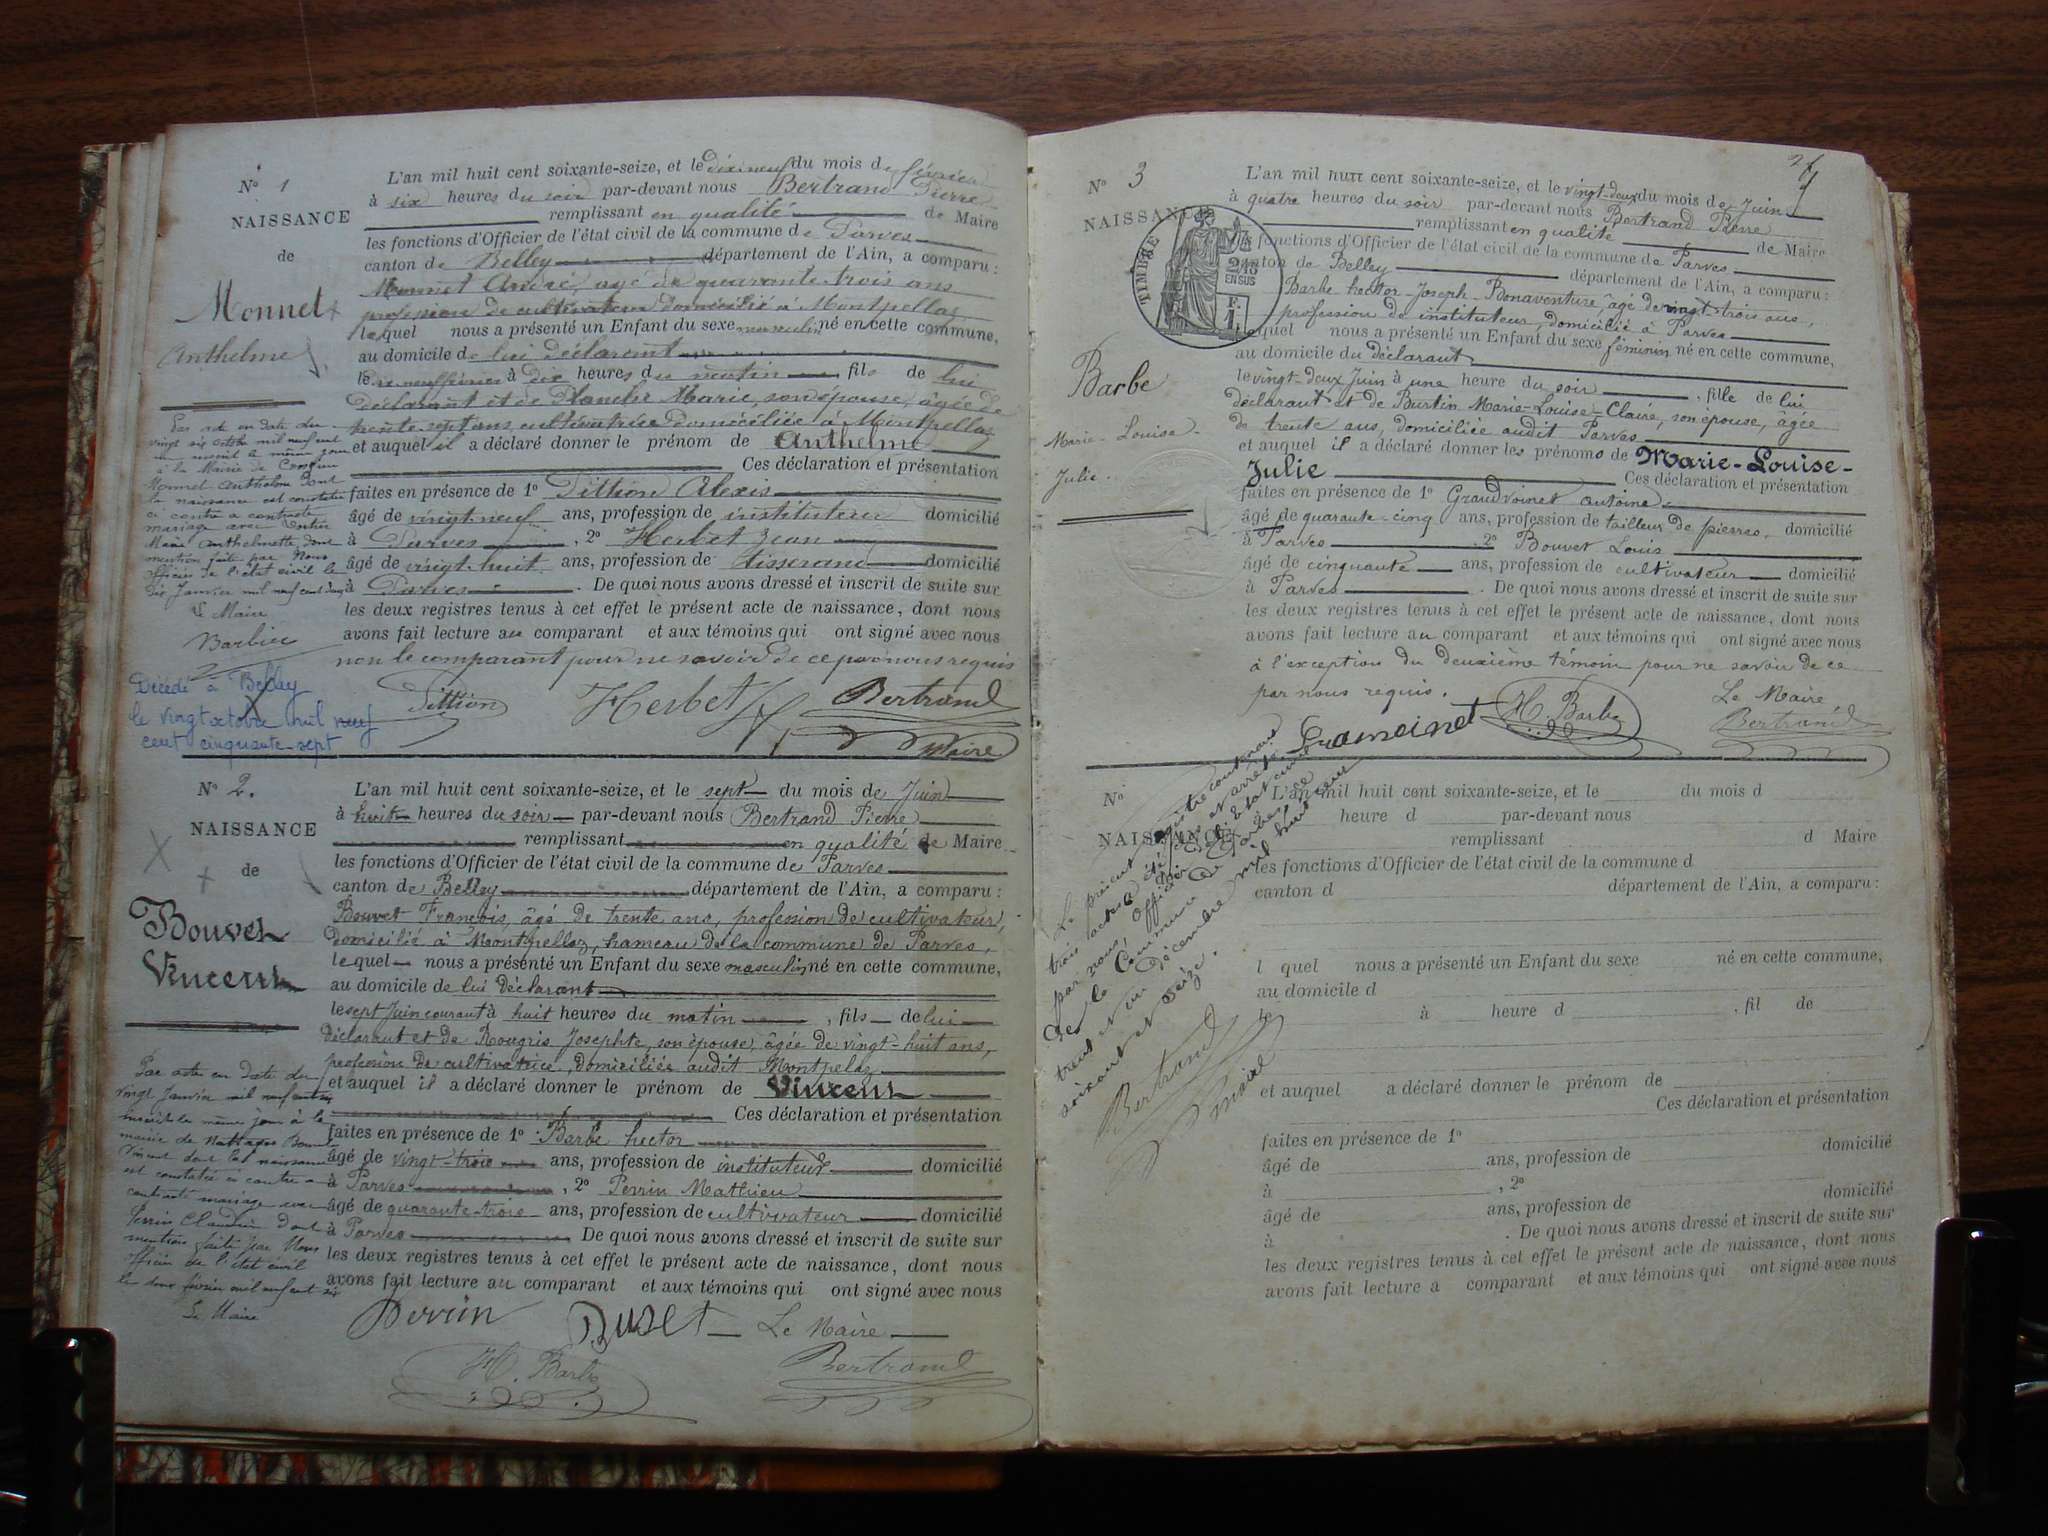 N° 1
NAISSANCE
de
Monnet
Anthelme
L'an mil huit cent soixante-seize, et le dix-neuf du mois de février
à six heures du soir par-devant nous Bertrand Pierre
remplissant en qualité de Maire
les fonctions d'Officier de l'état civil de la commune de Parves
canton de Belley département de l'Ain, a comparu :
Monnet André, agé de quarante trois ans
profession de cultivateur domicilié à Montpellaz
lequel nous a présenté un Enfant du sexe masculin né en cette commune,
au domicile de lui déclarant
le dix neuf février à dix heures du matin fils de lui
déclarant et de Planche Marie, son épouse, âgée de
trente sept ans cultivatrice domiciliée à Montpellaz
et auquel il a déclaré donner le prénom de Anthelme
Ces déclaration et présentation
faites en présence de 1° Pittion Alexis
âgé de vingt neuf ans, profession de instituteur domicilié
à Parves , 2° Herbet Jean
âgé de vingt huit ans, profession de tisserand domicilié
à Parves . De quoi nous avons dressé et inscrit de suite sur
les deux registres tenus à cet effet le présent acte de naissance, dont nous
avons fait lecture au comparant et aux témoins qui ont signé avec nous
non le comparant pour ne savoir de ce par nous requis
Pittion Herbet Bertrand
Maire
Par acte en date du
vingt six octobre mil neuf cent
un inscrit le même jour
à la Mairie de
Monnet Anthelme dont
la naissance est constatée
ci contre a contracté
mariage avec
Marie Anthelmette, dont
mention faite par Nous
officier de l'état civil le
dix Janvier mil neuf cent deux
Le Maire
Barbier
Décédé à Belley
le vingt octobre mil neuf
cent cinquante-sept
N° 2.
NAISSANCE
de
Bouvet
Vincent
L'an mil huit cent soixante-seize, et le sept du mois de Juin
à huit heures du soir par-devant nous Bertrand Pierre
remplissant en qualité de Maire
les fonctions d'Officier de l'état civil de la commune de Parves
canton de Belley département de l'Ain, a comparu :
Bouvet François, âgé de trente ans, profession de cultivateur,
domicilié à Montpellaz, hameau de la commune de Parves,
lequel nous a présenté un Enfant du sexe masculin né en cette commune,
au domicile de lui déclarant
le sept Juin courant à huit heures du matin , fils de lui
déclarant et de Rougris Josephte, son épouse, âgée de vingt-huit ans,
profession de cultivatrice, domiciliée audit Montpelaz
et auquel il a déclaré donner le prénom de Vincent
Ces déclaration et présentation
faites en présence de 1° Barbe hector
âgé de vingt-trois ans, profession de instituteur domicilié
à Parves , 2° Perrin Mathieu
âgé de quarante-trois ans, profession de cultivateur domicilié
à Parves De quoi nous avons dressé et inscrit de suite sur
les deux registres tenus à cet effet le présent acte de naissance, dont nous
avons fait lecture au comparant et aux témoins qui ont signé avec nous
Perrin Buvet Le Maire
H. Barbe Bertrand
Par acte en date du
vingt Janvier mil neuf cent six
inscrit le même jour à la
mairie de Nattages Bouvet
Vincent dont la naissance
est constatée ci contre a
contracté mariage avec
Perrin Claudine dont
mention faite par Nous
officier de l'état civil
le deux février mil neuf cent six
Le Maire
N° 3
NAISSANCE
TIMBRE
2/10
EN SUS
F.
1.
Barbe
Marie-Louise
Julie.
L'an mil huit cent soixante-seize, et le vingt-deux du mois de Juin
à quatre heures du soir par-devant nous Bertrand Pierre
remplissant en qualité de Maire
les fonctions d'Officier de l'état civil de la commune de Parves
canton de Belley département de l'Ain, a comparu :
Barbe hector-Joseph-Bonaventure, âgé de vingt-trois ans,
profession de instituteur, domicilié à Parves
lequel nous a présenté un Enfant du sexe féminin né en cette commune,
au domicile du déclarant
le vingt-deux Juin à une heure du soir , fille de lui
déclarant et de Burtin Marie-Louise-Claire, son épouse, âgée
de trente ans, domiciliée audit Parves
et auquel il a déclaré donner les prénoms de Marie-Louise-
Julie Ces déclaration et présentation
faites en présence de 1° Grandvoinet Antoine
âgé de quarante-cinq ans, profession de tailleur de pierres, domicilié
à Parves , 2° Bouvet Louis
âgé de cinquante ans, profession de cultivateur domicilié
à Parves . De quoi nous avons dressé et inscrit de suite sur
les deux registres tenus à cet effet le présent acte de naissance, dont nous
avons fait lecture au comparant et aux témoins qui ont signé avec nous
à l'exception du deuxième témoin pour ne savoir de ce
par nous requis. Le Maire
H. Barbe Bertrand
N°
NAISSANCE
L'an mil huit cent soixante-seize, et le du mois d
heure d par-devant nous
remplissant d Maire
les fonctions d'Officier de l'état civil de la commune d
canton d département de l'Ain, a comparu :
l quel nous a présenté un Enfant du sexe né en cette commune,
au domicile d
le à heure d , fil de
et auquel a déclaré donner le prénom de
Ces déclaration et présentation
faites en présence de 1°
âgé de ans, profession de domicilié
à , 2°
âgé de ans, profession de domicilié
à . De quoi nous avons dressé et inscrit de suite sur
les deux registres tenus à cet effet le présent acte de naissance, dont nous
avons fait lecture a comparant et aux témoins qui ont signé avec nous
Le présent registre contenant
trois actes a été clos et arrêté
par nous, Officier de l'Etat civil
de la Commune de Parves, ce
trent et un décembre mil huit cent
soixant et seize.
Bertrand
Maire